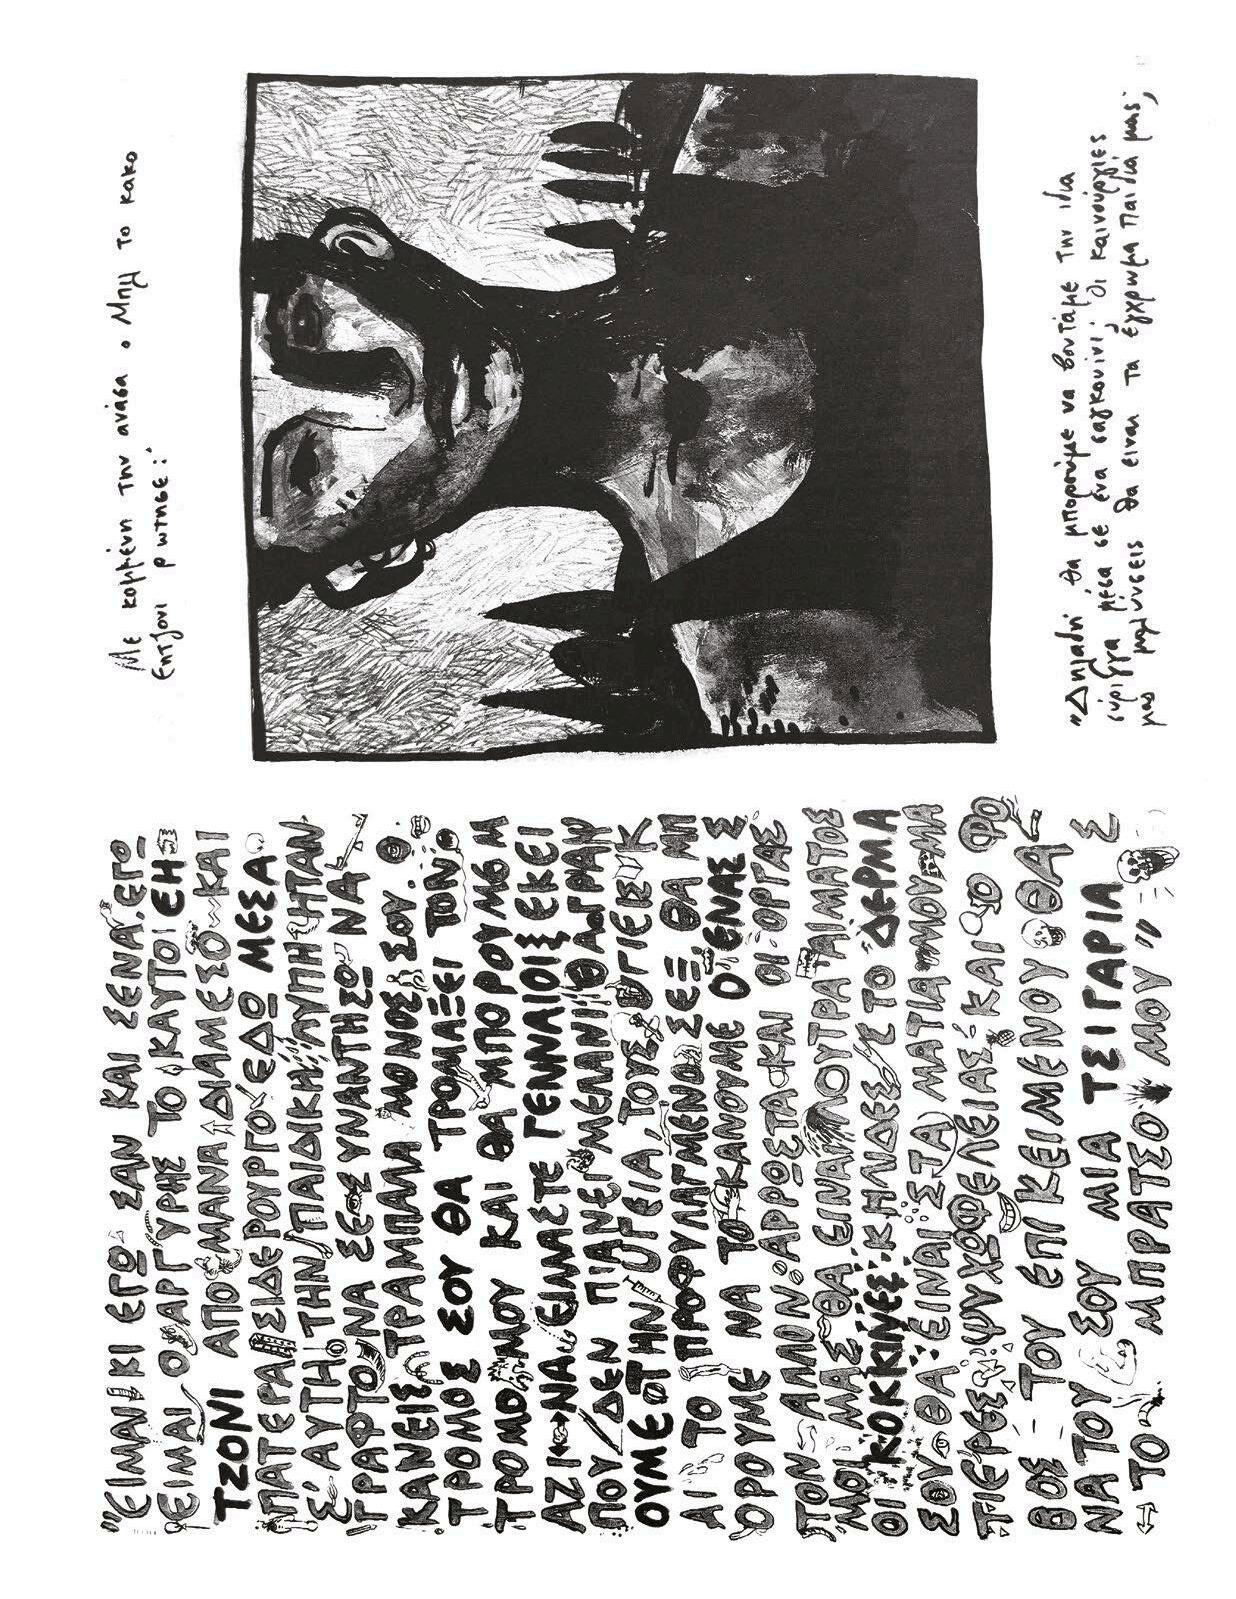 "ΕΙΜΑΙ ΚΙ ΕΓΩ ΣΑΝ ΚΑΙ ΣΕΝΑ. ΕΓΩ
ΕΙΜΑΙ Ο ΑΡΓΥΡΗΣ ΤΟ ΚΑΥΤΟ ΕΗ
ΤΖΟΝΙ ΑΠΟ ΜΑΝΑ ΔΙΑΜΕΣΟ ΚΑΙ
ΠΑΤΕΡΑ ΣΙΔΕΡΟΥΡΓΟ. ΕΔΩ ΜΕΣΑ
Σ' ΑΥΤΗ ΤΗΝ ΠΑΙΔΙΚΗ ΛΥΠΗ ΗΤΑΝ
ΓΡΑΦΤΟ ΝΑ ΣΕ ΣΥΝΑΝΤΗΣΩ ΝΑ
ΚΑΝΕΙΣ ΤΡΑΜΠΑΛΑ ΜΟΝΟΣ ΣΟΥ. Ο
ΤΡΟΜΟΣ ΣΟΥ ΘΑ ΤΡΟΜΑΞΕΙ ΤΟΝ
ΤΡΟΜΟ ΜΟΥ ΚΑΙ ΘΑ ΜΠΟΡΟΥΜΕ Μ
ΑΖΙ ΝΑ ΕΙΜΑΣΤΕ ΓΕΝΝΑΙΟΙ ΕΚΕΙ
ΠΟΥ ΔΕΝ ΠΙΑΝΕΙ ΜΕΛΑΝΙ ΘΑ ΓΡΑΨ
ΟΥΜΕ ΤΗΝ ΥΓΕΙΑ, ΤΟΥΣ ΥΓΙΕΙΣ Κ
ΑΙ ΤΟ ΠΡΟΦΥΛΑΓΜΕΝΟ ΣΕΞ, ΘΑ ΜΠ
ΟΡΟΥΜΕ ΝΑ ΤΟ ΚΑΝΟΥΜΕ Ο ΕΝΑΣ Σ
ΤΟΝ ΑΛΛΟΝ ΑΡΡΩΣΤΑ ΚΑΙ ΟΙ ΟΡΓΑΣ
ΜΟΙ ΜΑΣ ΘΑ ΕΙΝΑΙ ΛΟΥΤΡΑ ΑΙΜΑΤΟΣ
ΟΙ ΚΟΚΚΙΝΕΣ ΚΗΛΙΔΕΣ ΣΤΟ ΔΕΡΜΑ
ΣΟΥ ΘΑ ΕΙΝΑΙ ΣΤΑ ΜΑΤΙΑ ΜΟΥ ΜΑ
ΠΙΕΡΕΣ ΨΥΧΩΦΕΛΕΙΑΣ ΚΑΙ Ο ΦΟ
ΒΟΣ ΤΟΥ ΕΠΙΚΕΙΜΕΝΟΥ ΘΑ
ΝΑΤΟΥ ΣΟΥ ΜΙΑ ΤΣΙΓΑΡΙΑ Σ
ΤΟ ΜΠΡΑΤΣΟ ΜΟΥ"
Με κομμένη την ανάσα ο Μπιμ το κακο
Εητζονι ρωτησε:
"Δηλαδή θα μπορούμε να βουτάμε την ιδια
σύριγγα μέσα σε ένα σαγκουίνι; Οι καινούργιες
μας μολύνσεις θα ειναι τα έγχρωμα παιδιά μας;